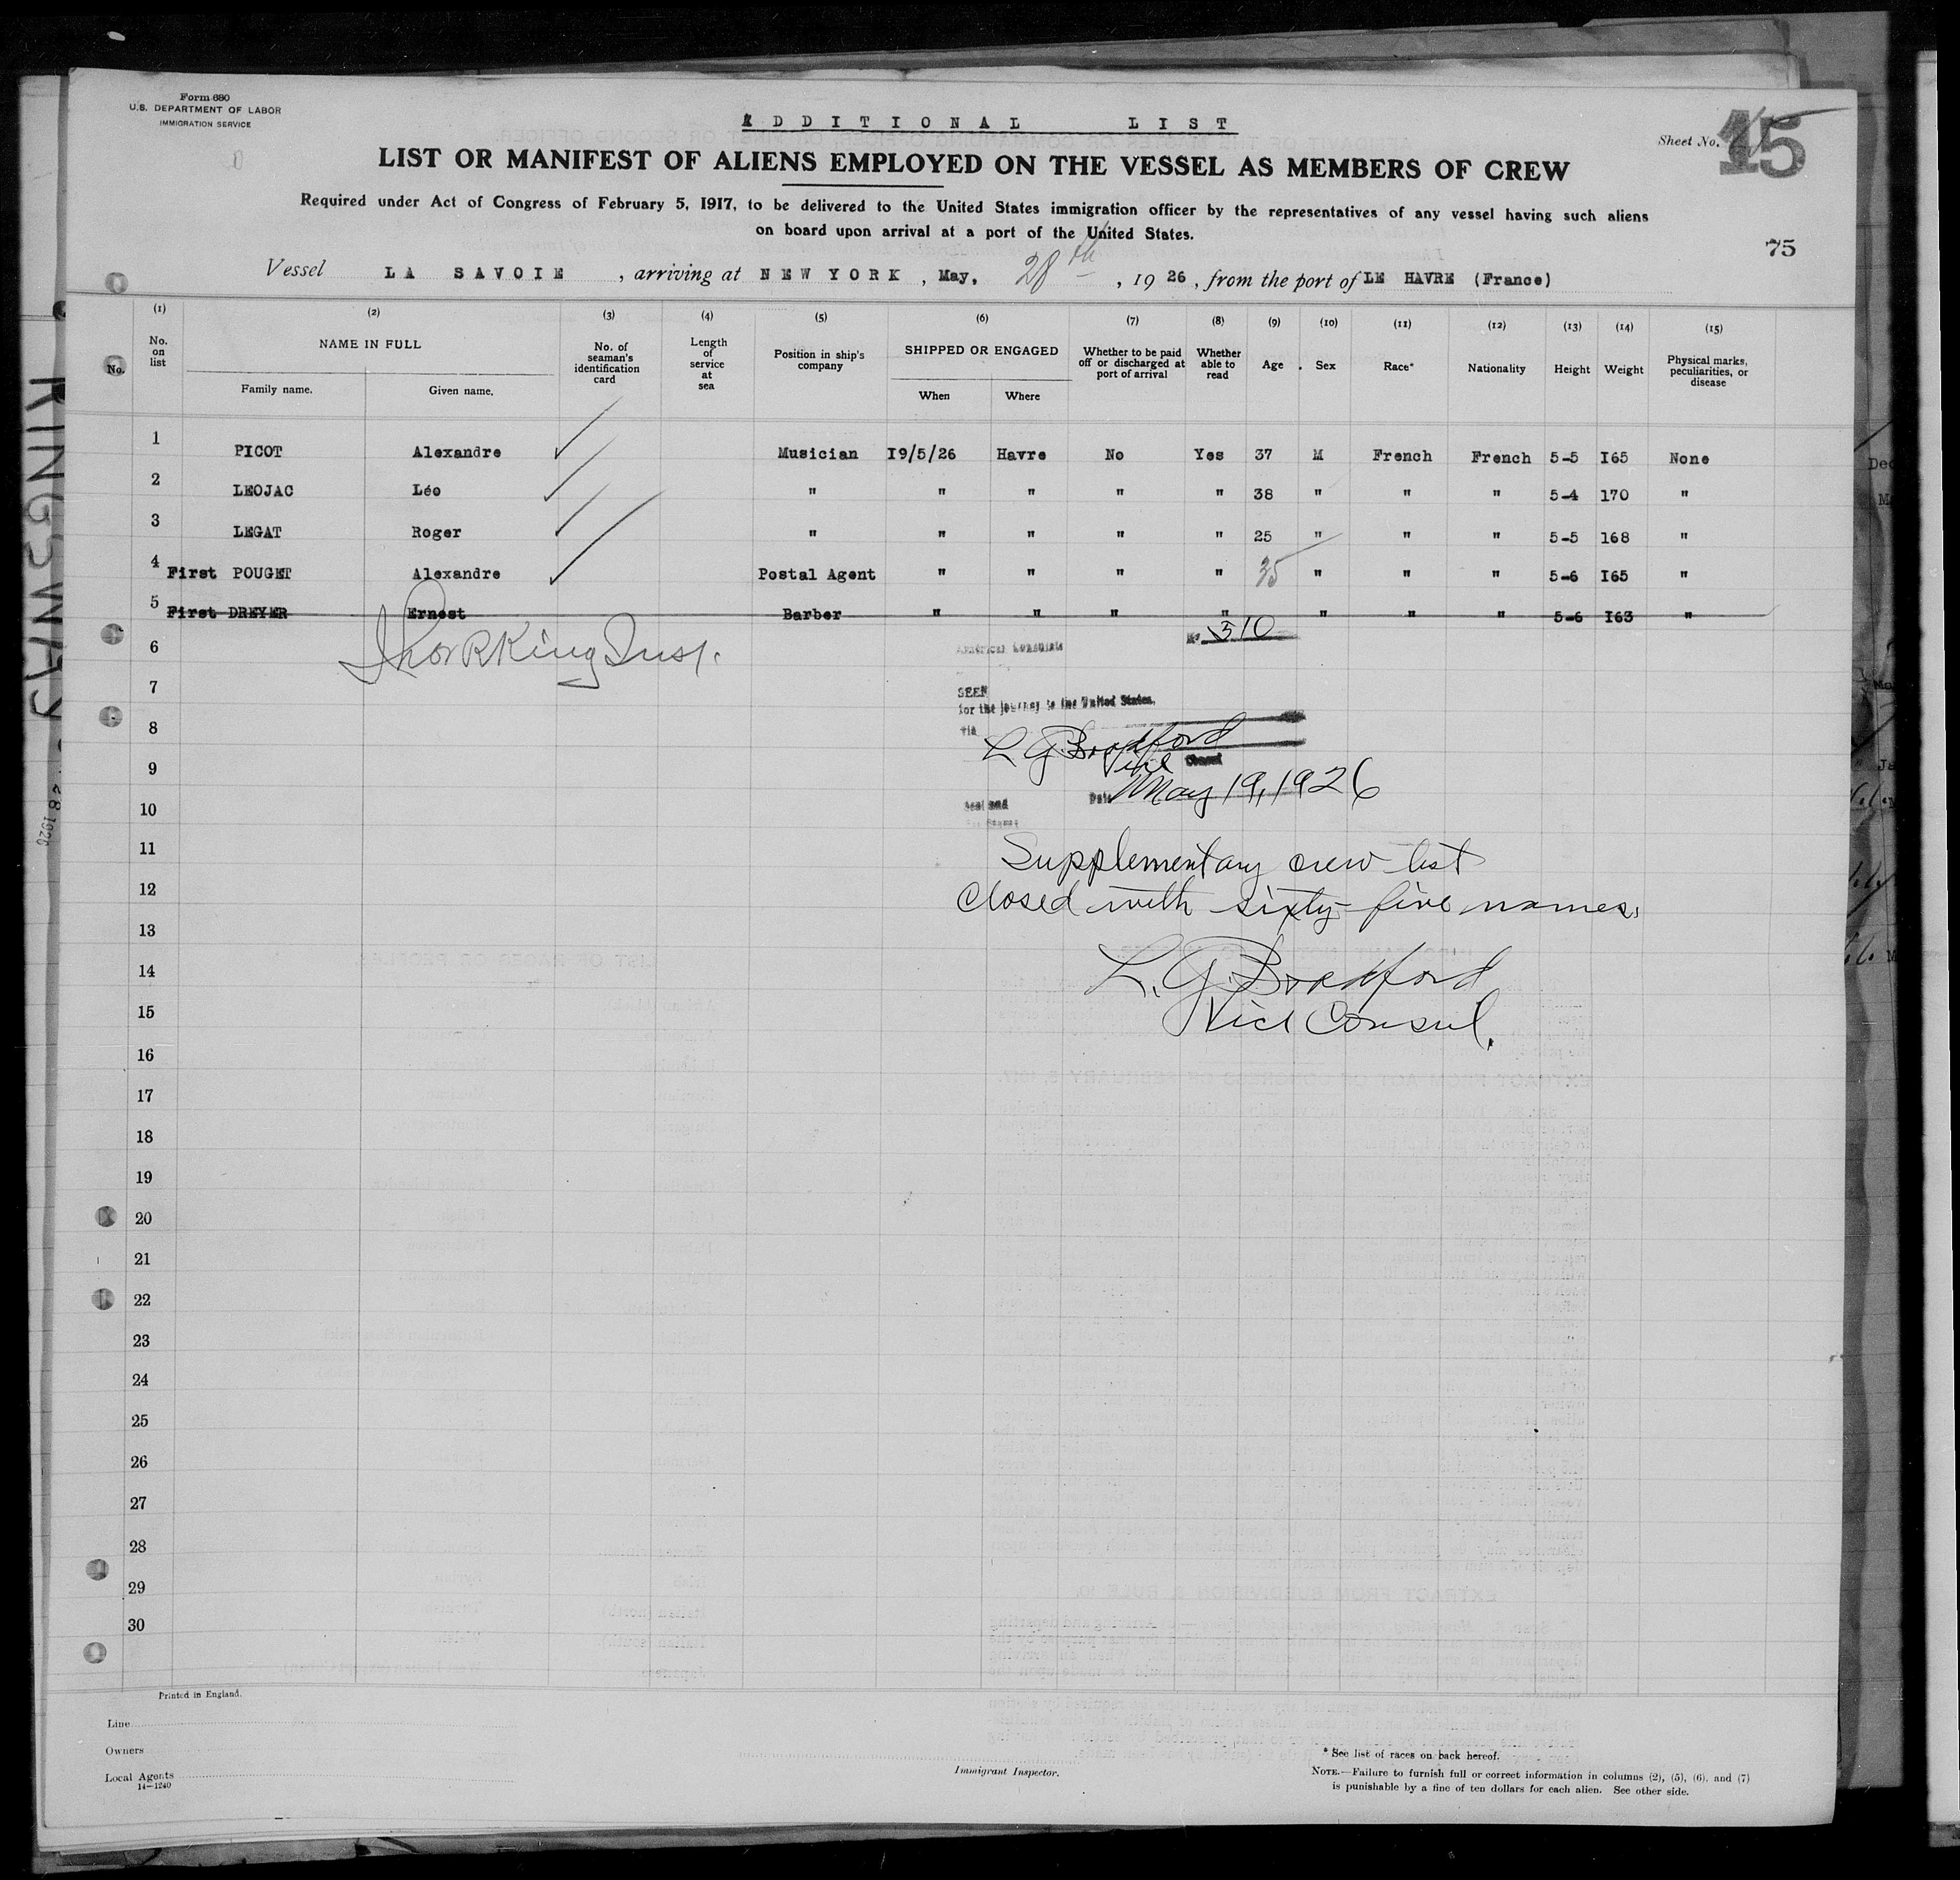 Form 680
U.S. DEPARTMENT OF LABOR
IMMIGRATION SERVICE
ADDITIONAL LIST
Sheet No. 15
LIST OR MANIFEST OF ALIENS EMPLOYED ON THE VESSEL AS MEMBERS OF CREW
Required under Act of Congress of February 5, 1917, to be delivered to the United States immigration officer by the representatives of any vessel having such aliens
on board upon arrival at a port of the United States.
75
Vessel LA SAVOIE, arriving at NEW YORK, May, 28th, 1926, from the port of LE HAVRE (France)
(1) (2) (3) (4) (5) (6) (7) (8) (9) (10) (11) (12) (13) (14) (15)
No. No. on list NAME IN FULL Family name. Given name. No. of seaman's identification card Length of service at sea Position in ship's company SHIPPED OR ENGAGED When Where Whether to be paid off or discharged at port of arrival Whether able to read Age Sex Race* Nationality Height Weight Physical marks, peculiarities, or disease
1 PICOT Alexandre Musician I9/5/26 Havre No Yes 37 M French French 5-5 I65 None
2 LEOJAC Léo " " " " " 38 " " " 5-4 170 "
3 LEGAT Roger " " " " " 25 " " " 5-5 168 "
4 First POUGET Alexandre Postal Agent " " " " 35 " " " 5-6 I65 "
5 First DREYER Ernest Barber " " " " " " " 5-6 I63 "
6 King Insp.
No 310
American Consulate
7 SEEN
for the journey to the United States,
via
8 L G Bradford
9 Vice Consul
Date May 19, 1926
10 Seal and
11 Supplementary crew list
12 closed with sixty-five names.
13
14 L. G. Bradford
15 Vice Consul.
16
17
18
19
20
21
22
23
24
25
26
27
28
29
30
Printed in England.
Line
Owners
Local Agents
14—1240
Immigrant Inspector.
* See list of races on back hereof.
NOTE.—Failure to furnish full or correct information in columns (2), (5), (6), and (7)
is punishable by a fine of ten dollars for each alien. See other side.
KINGSWAY